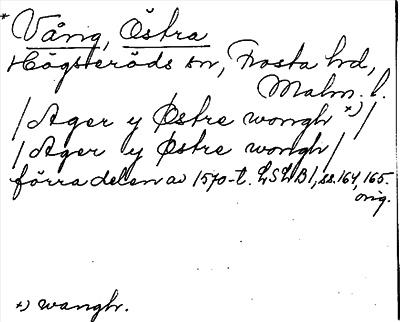 * Vång, Östra
Högseröds sn, Frosta hd,
Malm. l.
/Ager y Østre wongh *)/
/Ager y Østre wongh/
förra delen av 1570-t. LSLB 1, ss. 164, 165.
orig.
*) wangh.